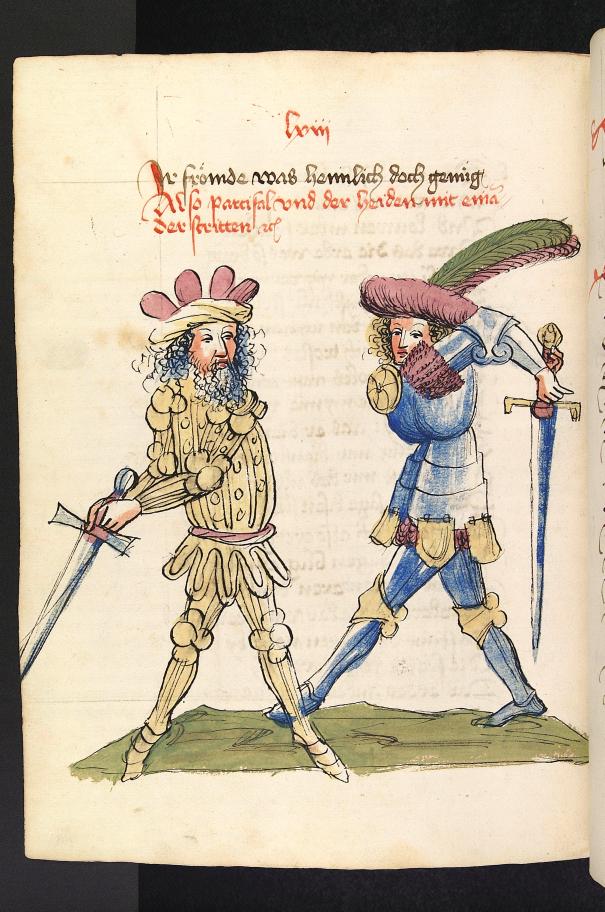 lxiii
Ir frömde was heimlich doch genuͦg
Also partifal vnd der heiden mit eina͞
der stritten ꝛc